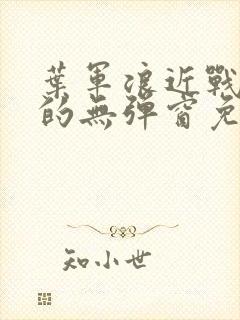 葉軍浪近戰
的無彈窗免
知小世